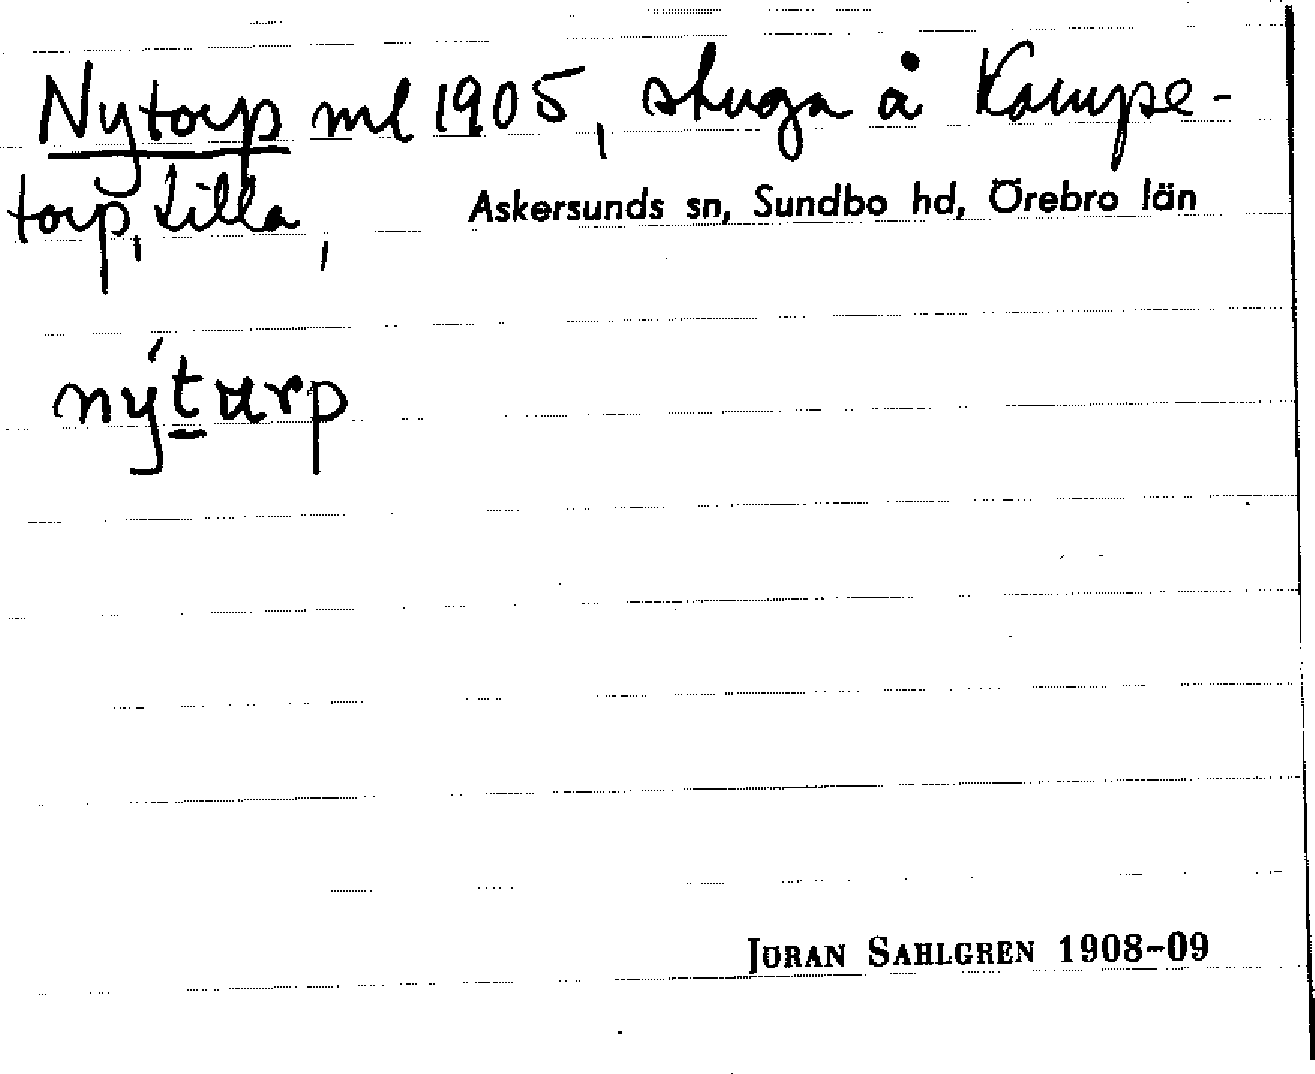 Nytorp ml 1905, stuga å Kampe-
torp, Lilla,
Askersunds sn, Sundbo hd, Örebro län
nýturp
JÖRAN SAHLGREN 1908-09